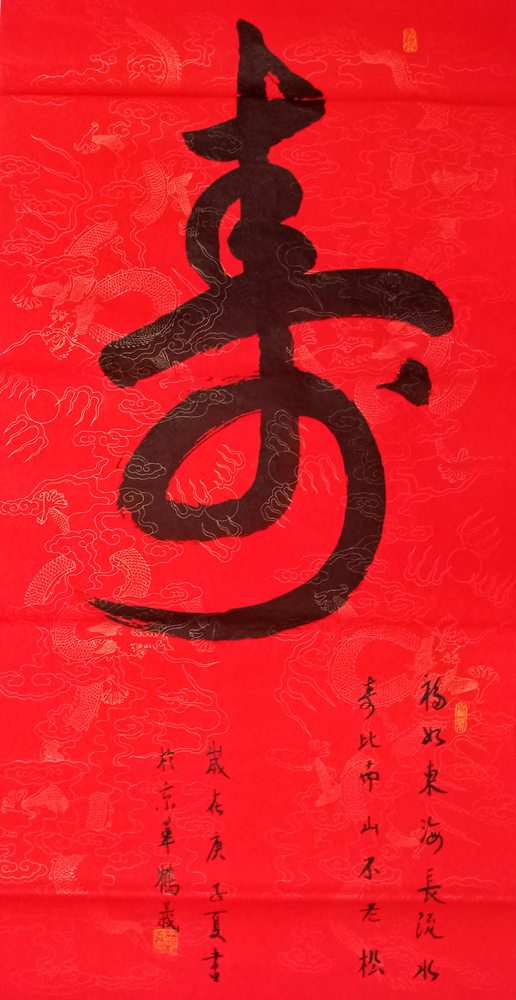 寿
福如東海長流水
寿比南山不老松
歲在庚子夏書
於京華鶴義